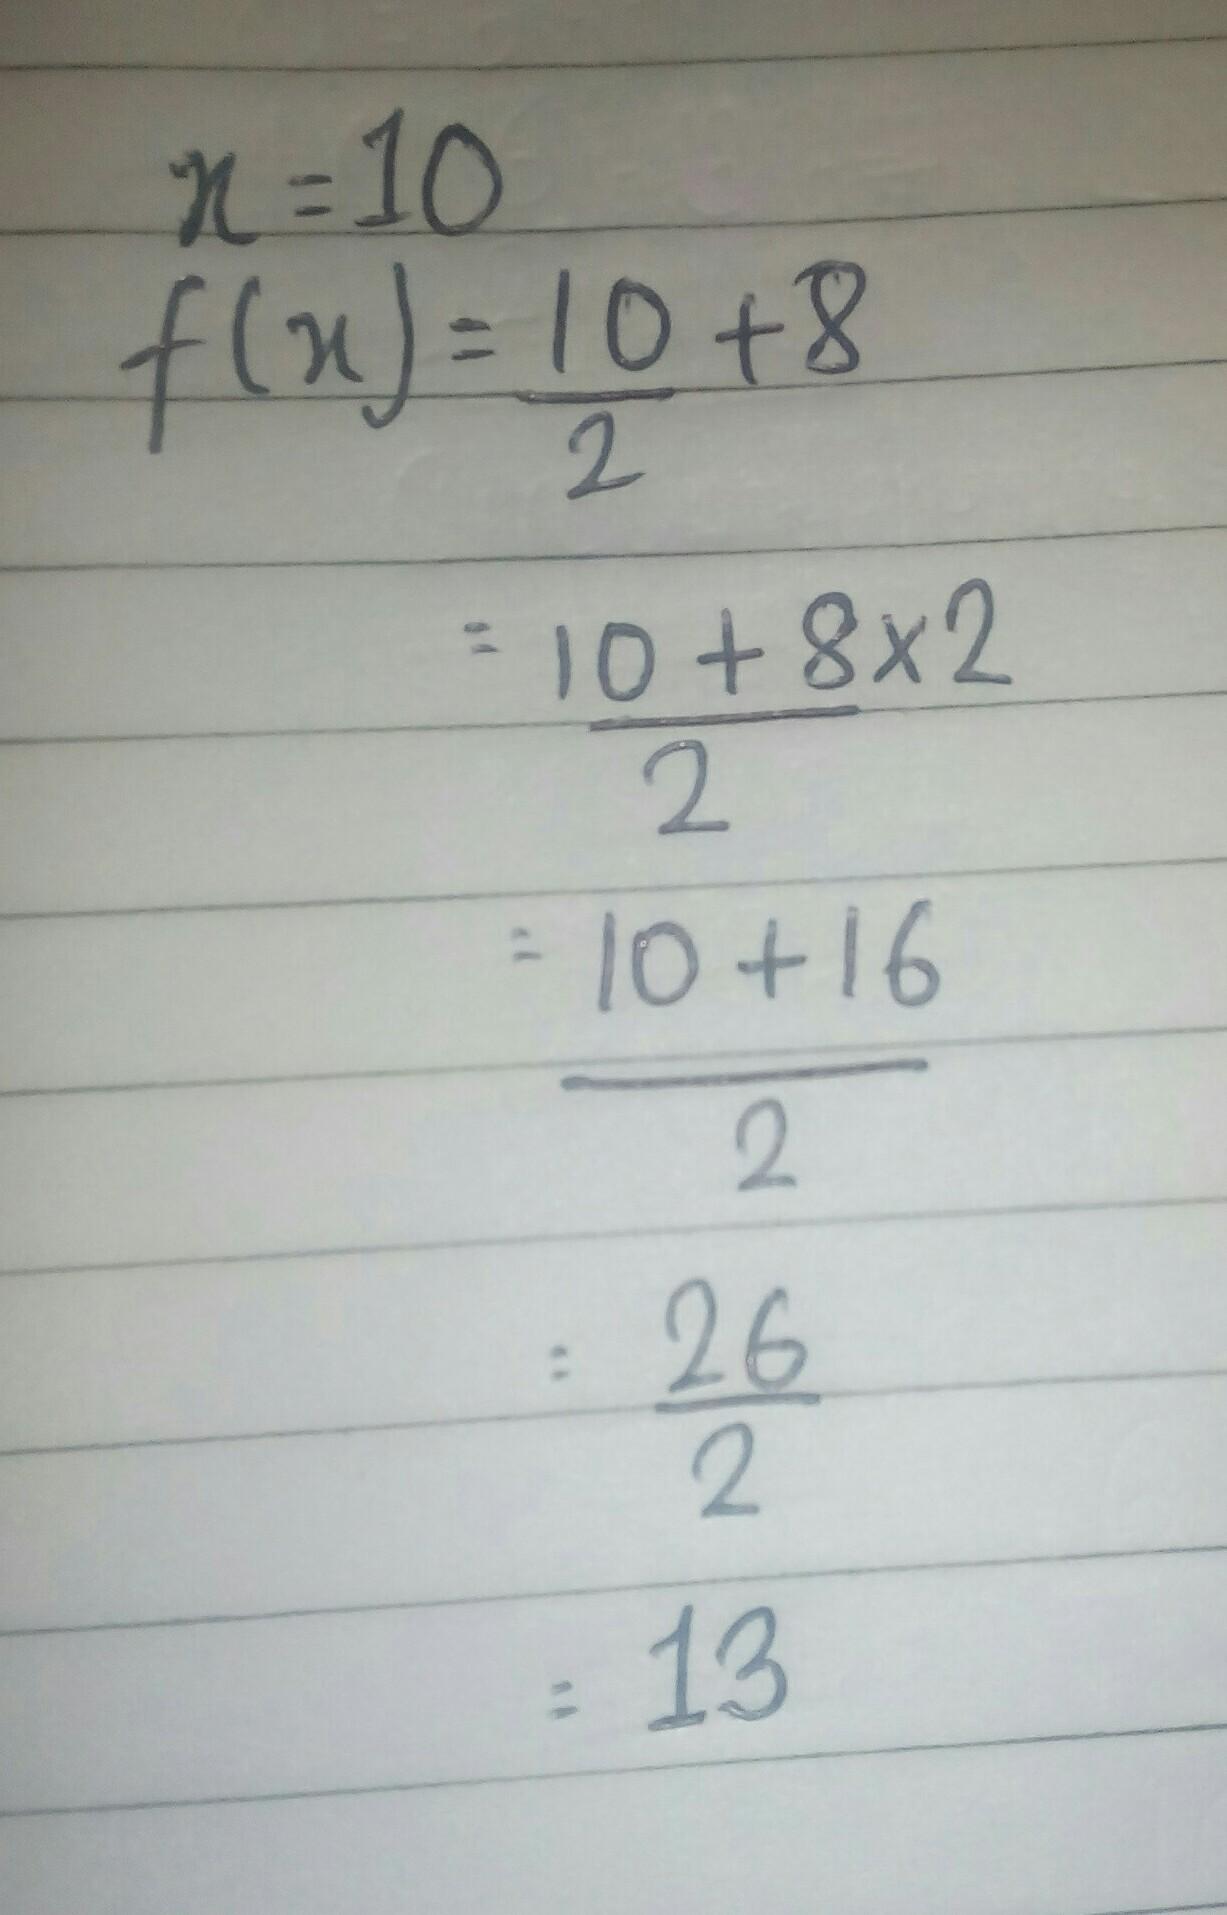 x = 10
f(x) = 10/2 + 8
= 10 + 8 x 2 / 2
= 10 + 16 / 2
= 26 / 2
= 13